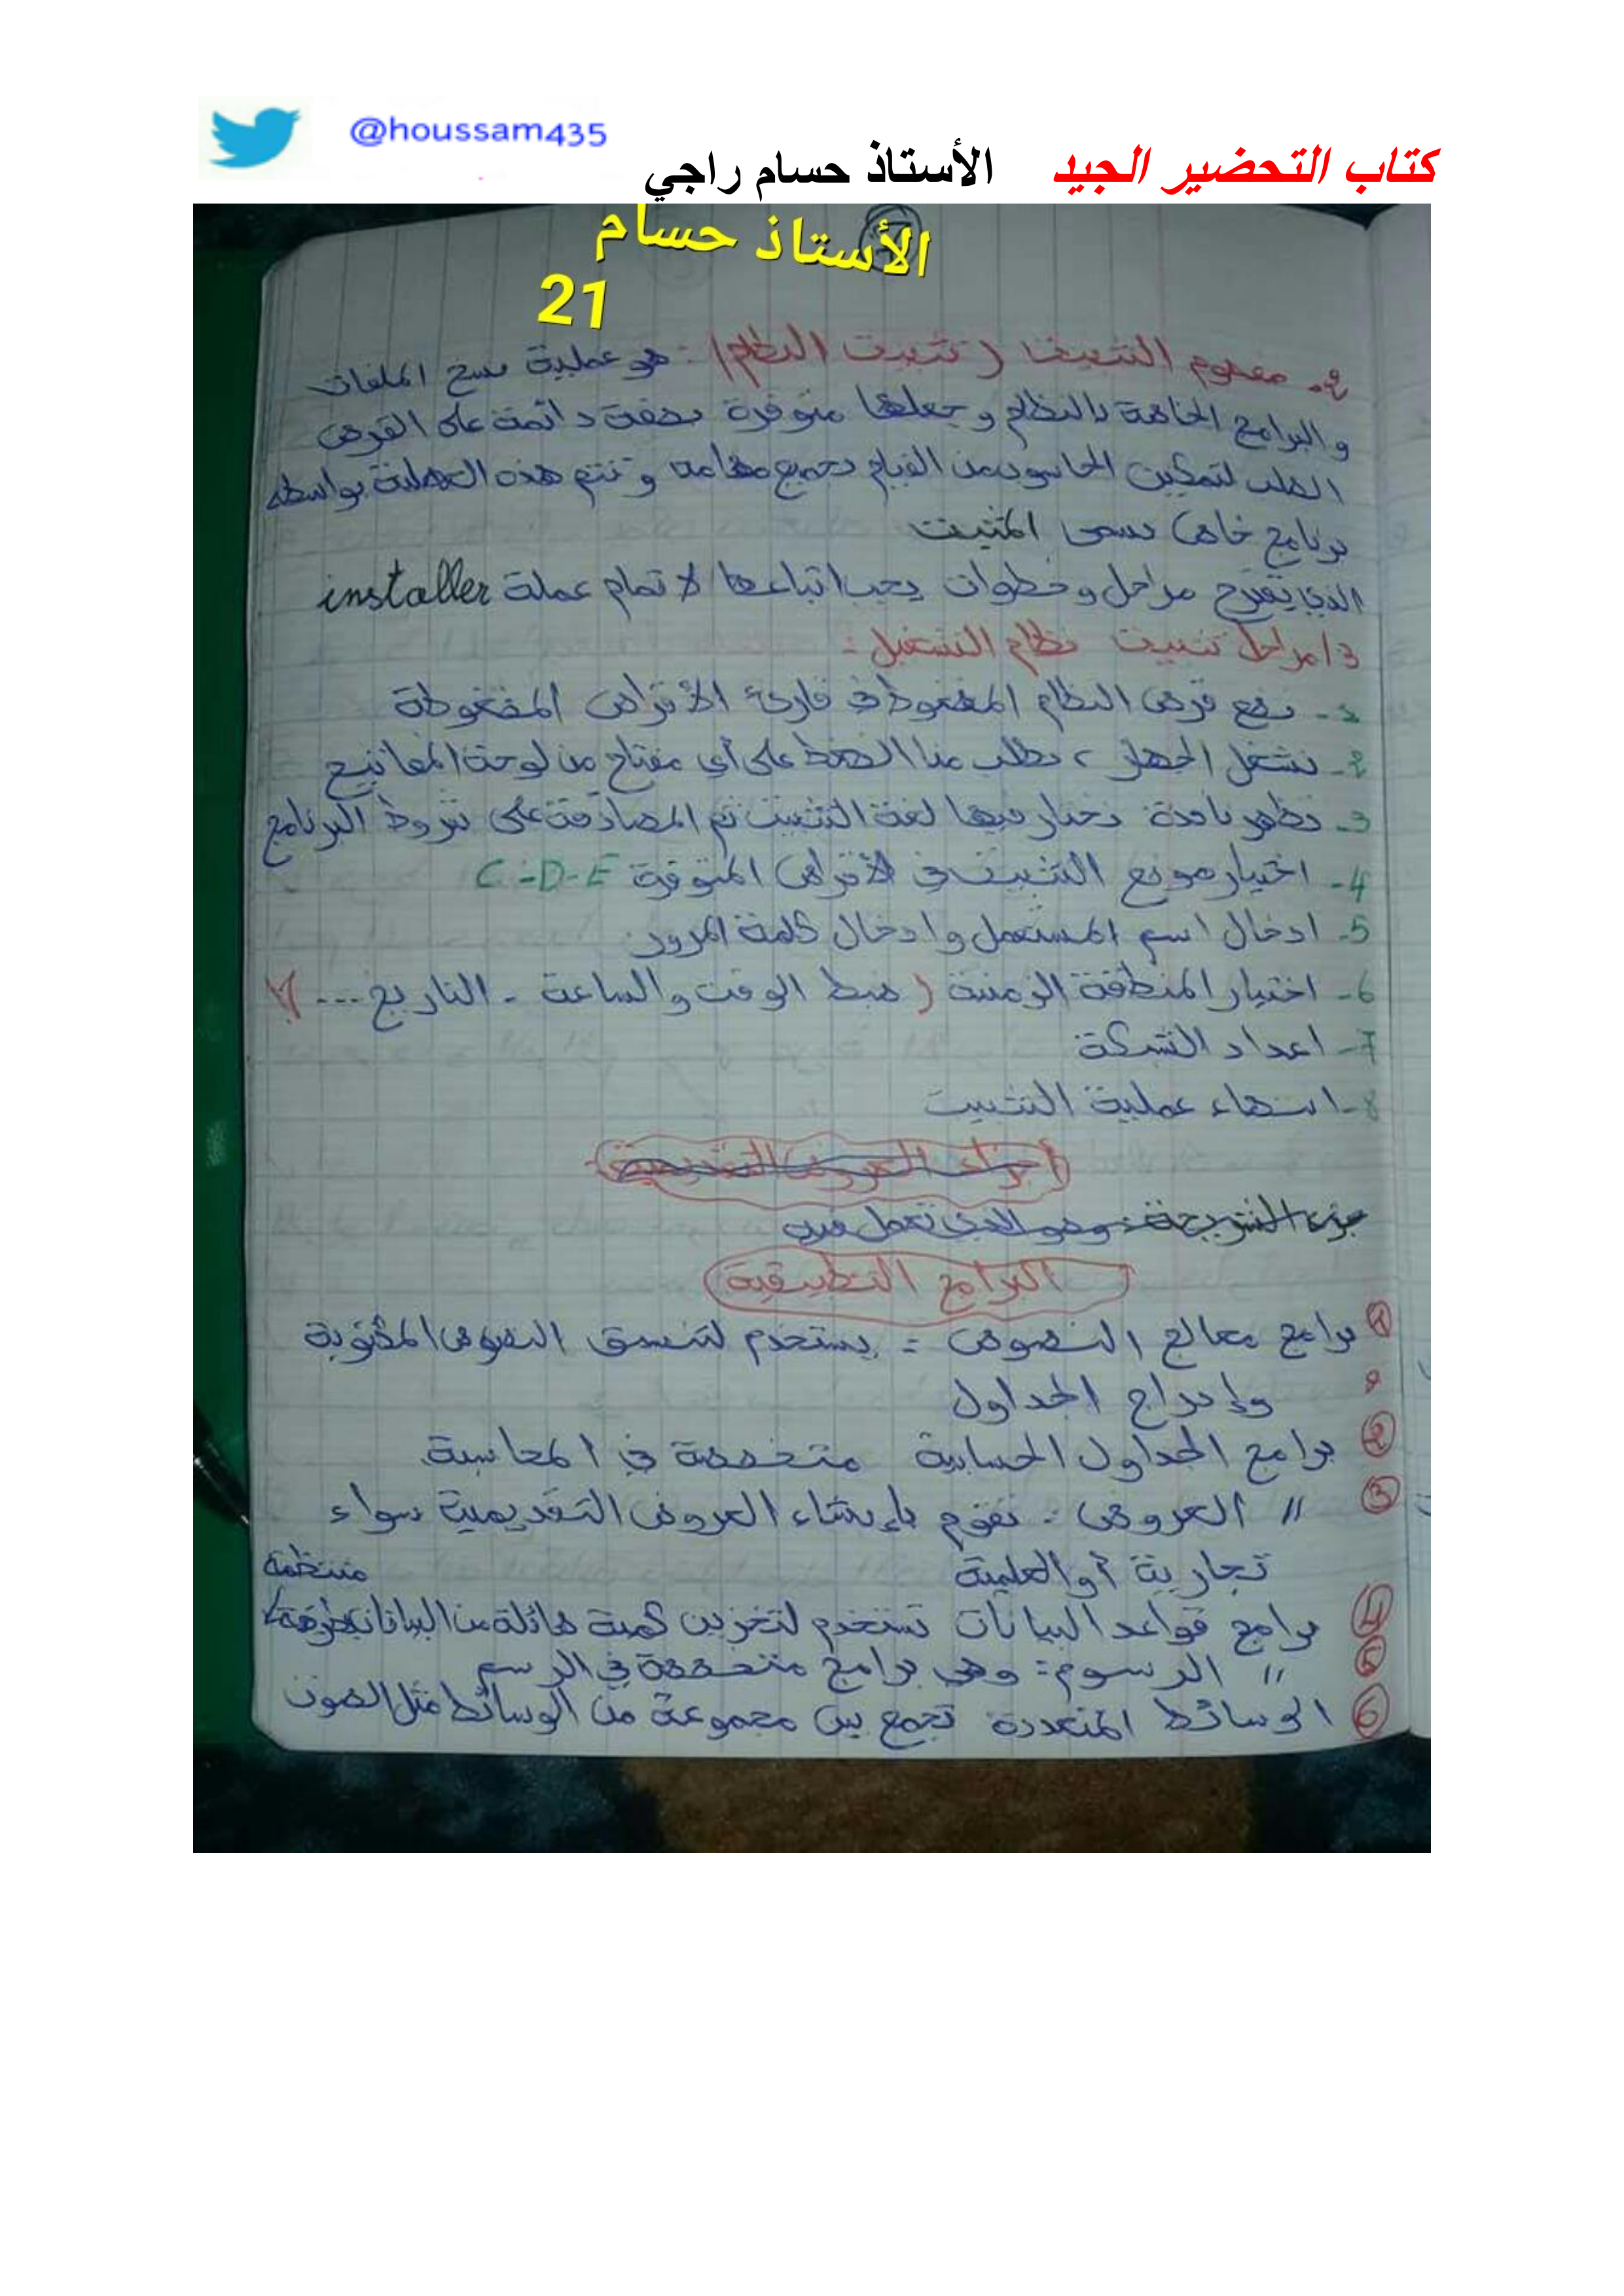 @houssam435
كتاب التحضير الجيد الأستاذ حسام راجي
الأستاذ حسام
21
2- مفهوم التثبيت (تثبيت النظام): هو عملية نسخ الملفات
والبرامج الخاصة بالنظام وجعلها متوفرة بصفة دائمة على القرص
الصلب لتمكين الحاسوب من القيام بجميع مهامه وتتم هذه العملية بواسطة
برنامج خاص يسمى المثبت
الذي يقترح مراحل وخطوات يجب اتباعها لاتمام عملة installer
3/ مراحل تثبيت نظام التشغيل:
1- نضع قرص النظام المضغوط في قارئ الأقراص المضغوطة
2- نشغل الجهاز، يطلب منا الضغط على أي مفتاح من لوحة المفاتيح
3- تظهر نافذة نختار فيها لغة التثبيت ثم المصادقة على شروط البرنامج
4- اختيار موضع التثبيت في الأقراص المتوفرة C-D-E
5- ادخال اسم المستعمل وادخال كلمة المرور
6- اختيار المنطقة الزمنية (ضبط الوقت والساعة - التاريخ ...
7- اعداد الشبكة
8- انهاء عملية التثبيت
أجزاء العروض التقديمية
جزء الشريحة: وهو الذي تعمل فيه
البرامج التطبيقية
1 برامج معالج النصوص: يستخدم لتنسيق النصوص المكتوبة
وإدراج الجداول
2 برامج الجداول الحسابية متخصصة في المحاسبة
3 // العروض: تقوم بإنشاء العروض التقديمية سواء
تجارية أو العلمية
4 برامج قواعد البيانات تستخدم لتخزين كمية هائلة من البيانات بطريقة منتظمة
5 // الرسوم: وهي برامج متخصصة في الرسم
6 الوسائط المتعددة تجمع بين مجموعة من الوسائط مثل الصوت